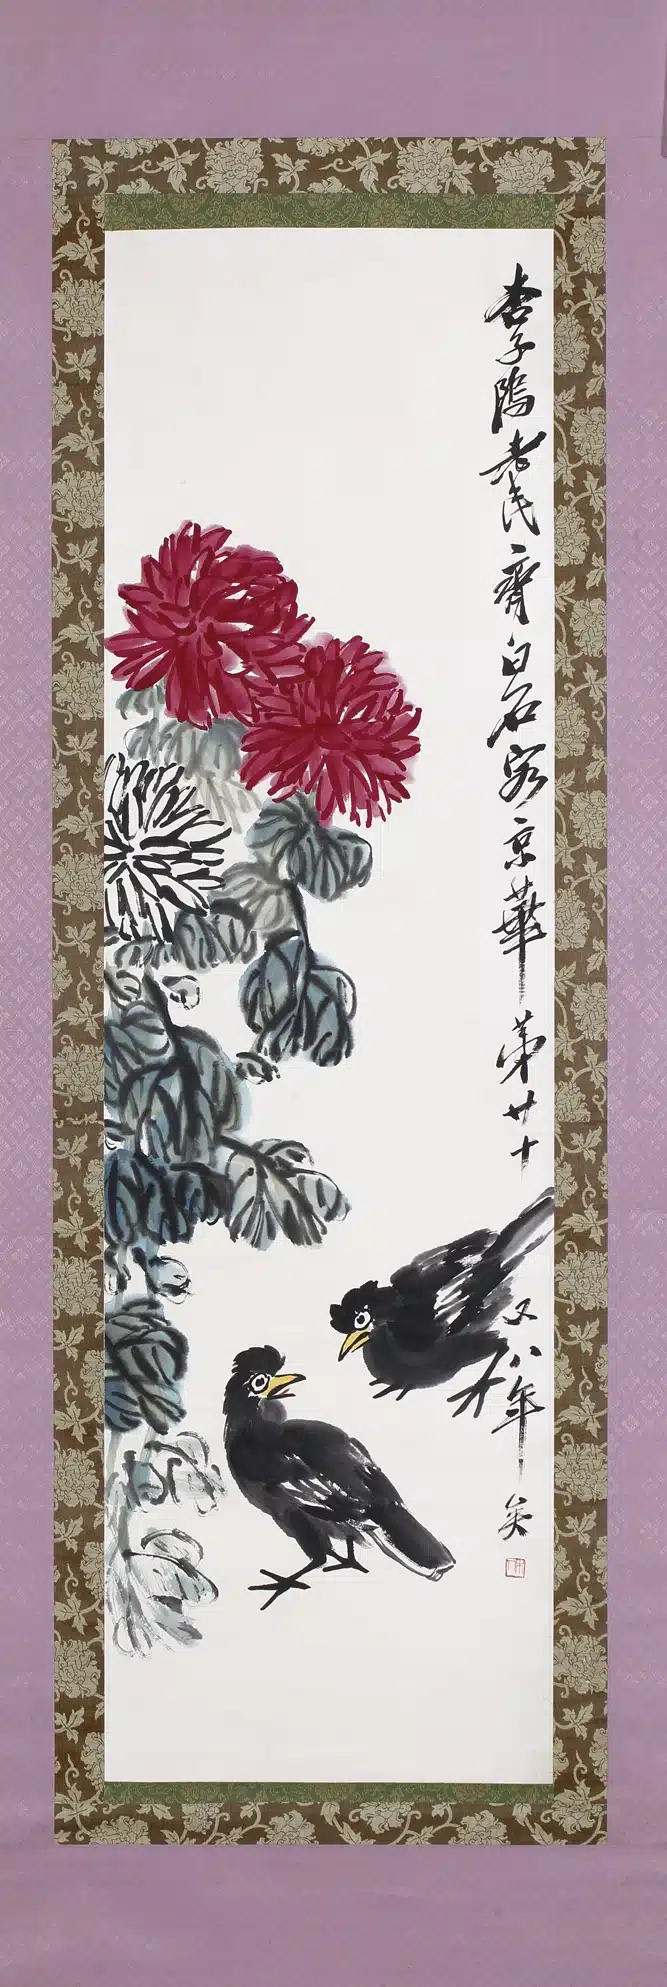 杏子隖老民齊白石客京華第廿十又八年矣